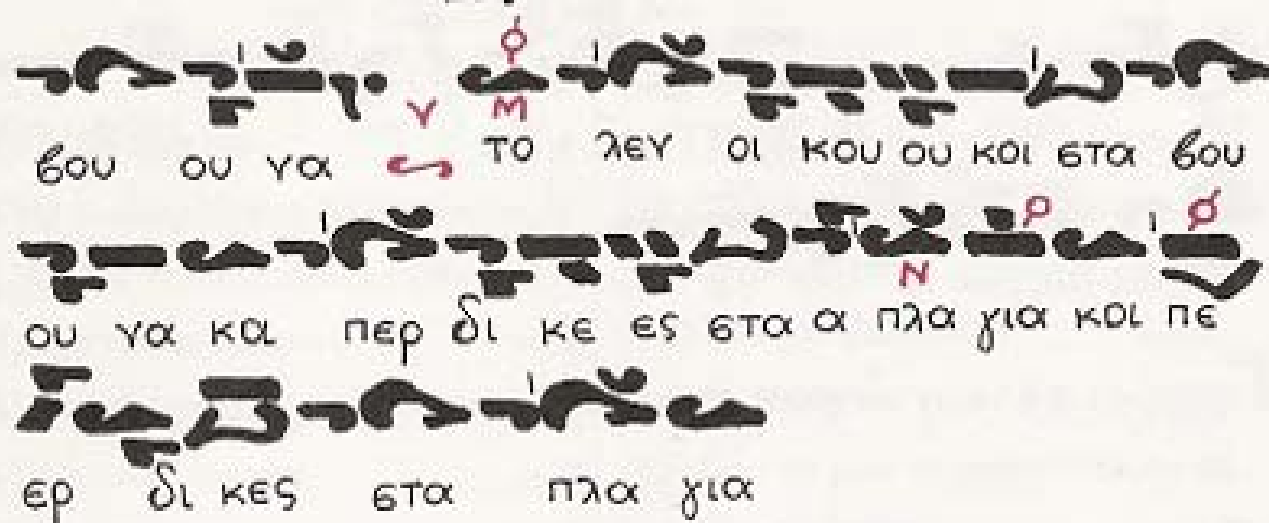 βου ου να το λεν οι κου ου κοι στα βου
ου να κα περ δι κε ες στα α πλα για κοι πε
ερ δι κες στα πλα για